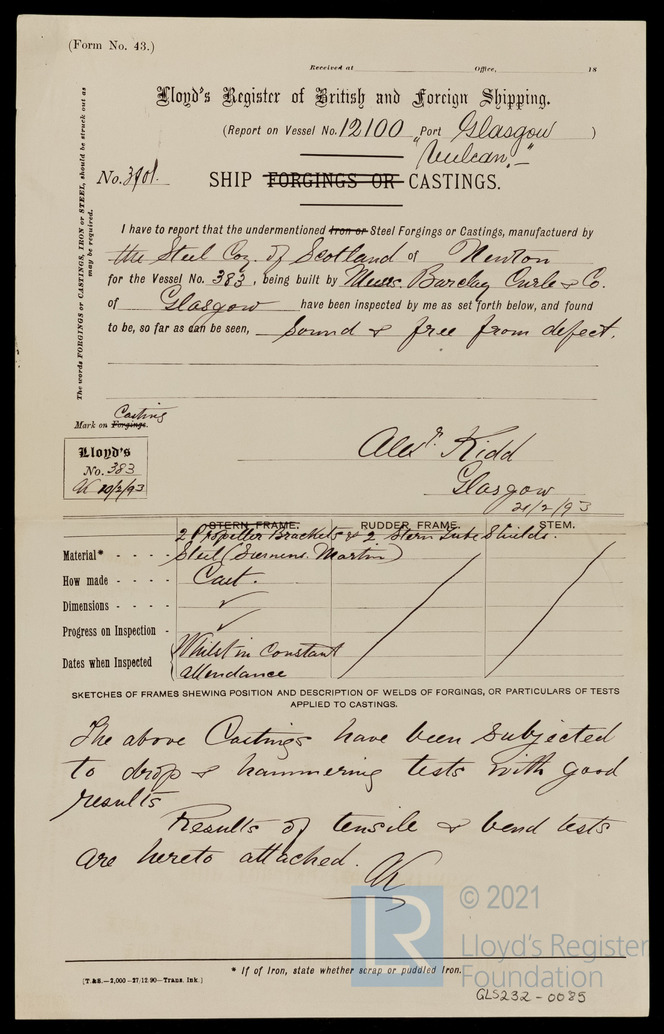 (Form No. 43.)
Received at Office, 18
Lloyd's Register of British and Foreign Shipping.
(Report on Vessel No. 12100 Port Glasgow )
"Vulcan."
No. 3901.
SHIP FORGINGS OR CASTINGS.
The words FORGINGS or CASTINGS, IRON or STEEL, should be struck out as
may be required.
I have to report that the undermentioned Iron or Steel Forgings or Castings, manufactuerd by
the Steel Coy. of Scotland of Newton
for the Vessel No. 383, being built by Messrs. Barclay Curle & Co.
of Glasgow have been inspected by me as set forth below, and found
to be, so far as can be seen, Sound & free from defect.
Casting
Mark on Forgings.
Lloyd's
No. 383
AK 20/2/93
Alexr. Kidd
Glasgow
21/2/93
STERN FRAME. RUDDER FRAME. STEM.
2 Propeller Brackets & 2 Stern Tube Shields.
Material* - - - - Steel (Siemens Martin)
How made - - - - Cast.
Dimensions - - - - ✓
Progress on Inspection - ✓
Dates when Inspected { Whilst in Constant
attendance
SKETCHES OF FRAMES SHEWING POSITION AND DESCRIPTION OF WELDS OF FORGINGS, OR PARTICULARS OF TESTS
APPLIED TO CASTINGS.
The above Castings have been subjected
to drop & hammering tests with good
results
Results of tensile & bend tests
are hereto attached. AK
LR © 2021
Lloyd's Register
Foundation
* If of Iron, state whether scrap or puddled Iron.
[T.&S.—2,000—27/12/90—Trans. Ink.]
GLS232-0085